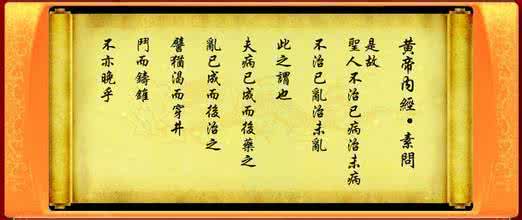 黃帝內經•素問
是故
聖人不治已病治未病
不治已亂治未亂
此之謂也
夫病已成而後藥之
亂已成而後治之
譬猶渴而穿井
鬥而鑄錐
不亦晚乎